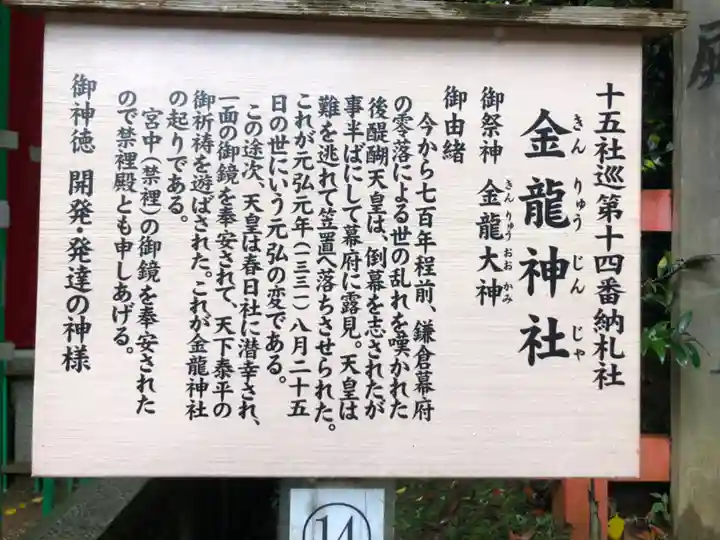 十五社巡第十四番納札社
金龍神社
きんりゅうじんじゃ
御祭神 金龍大神
きんりゅうおおかみ
御由緒
今から七百年程前、鎌倉幕府
の零落による世の乱れを嘆かれた
後醍醐天皇は、倒幕を志されたが
事半ばにして幕府に露見。天皇は
難を逃れて笠置へ落ちさせられた。
これが元弘元年(一三三一)八月二十五
日の世にいう元弘の変である。
この途次、天皇は春日社に潜幸され、
一面の御鏡を奉安されて、天下泰平の
御祈祷を遊ばされた。これが金龍神社
の起りである。
宮中(禁裡)の御鏡を奉安された
ので禁裡殿とも申しあげる。
御神徳 開発・発達の神様
14